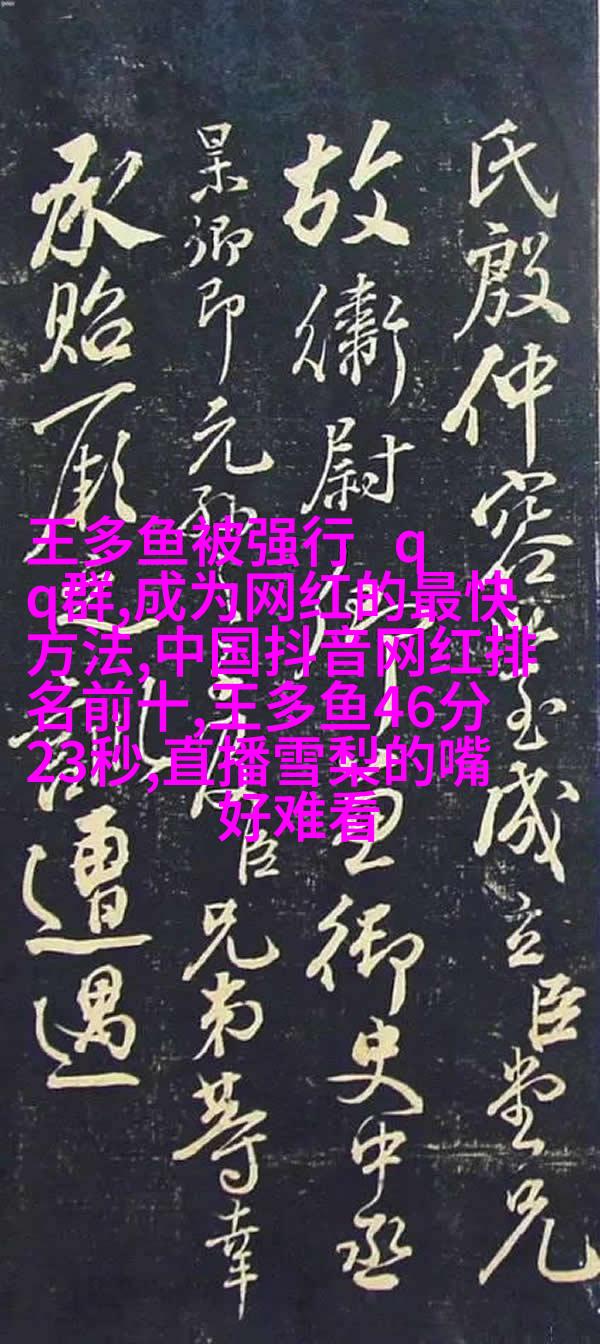 氏殷仲容至成立臣堂兄
故衛尉卿兼御史中丞
杲卿即元孫臣兄弟等幸
承貽厥遭遇
王多鱼被强行 q
q群,成为网红的最快
方法,中国抖音网红排
名前十,王多鱼46分
23秒,直播雪梨的嘴
好难看